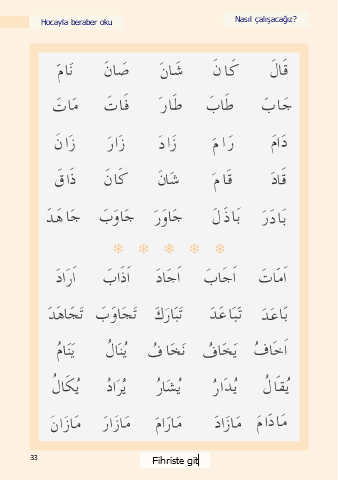 Hocayla beraber oku
Nasıl çalışacağız?
قَالَ كَانَ شَانَ صَانَ نَامَ
جَابَ طَابَ طَارَ فَاتَ مَاتَ
دَامَ رَامَ زَادَ زَارَ زَانَ
قَادَ قَامَ شَانَ كَانَ ذَاقَ
بَادَرَ بَاذَلَ جَاوَرَ جَاوَبَ جَاهَدَ
اَمَاتَ اَجَابَ اَجَادَ اَذَابَ اَرَادَ
بَاعَدَ تَبَاعَدَ تَبَارَكَ تَجَاوَبَ تَجَاهَدَ
اَخَافُ يَخَافُ نَخَافُ يُنَالُ يَنَامُ
يُقَالُ يُدَارُ يُشَارُ يُرَادُ يُكَالُ
مَادَامَ مَازَادَ مَارَامَ مَازَارَ مَازَانَ
33
Fihriste git